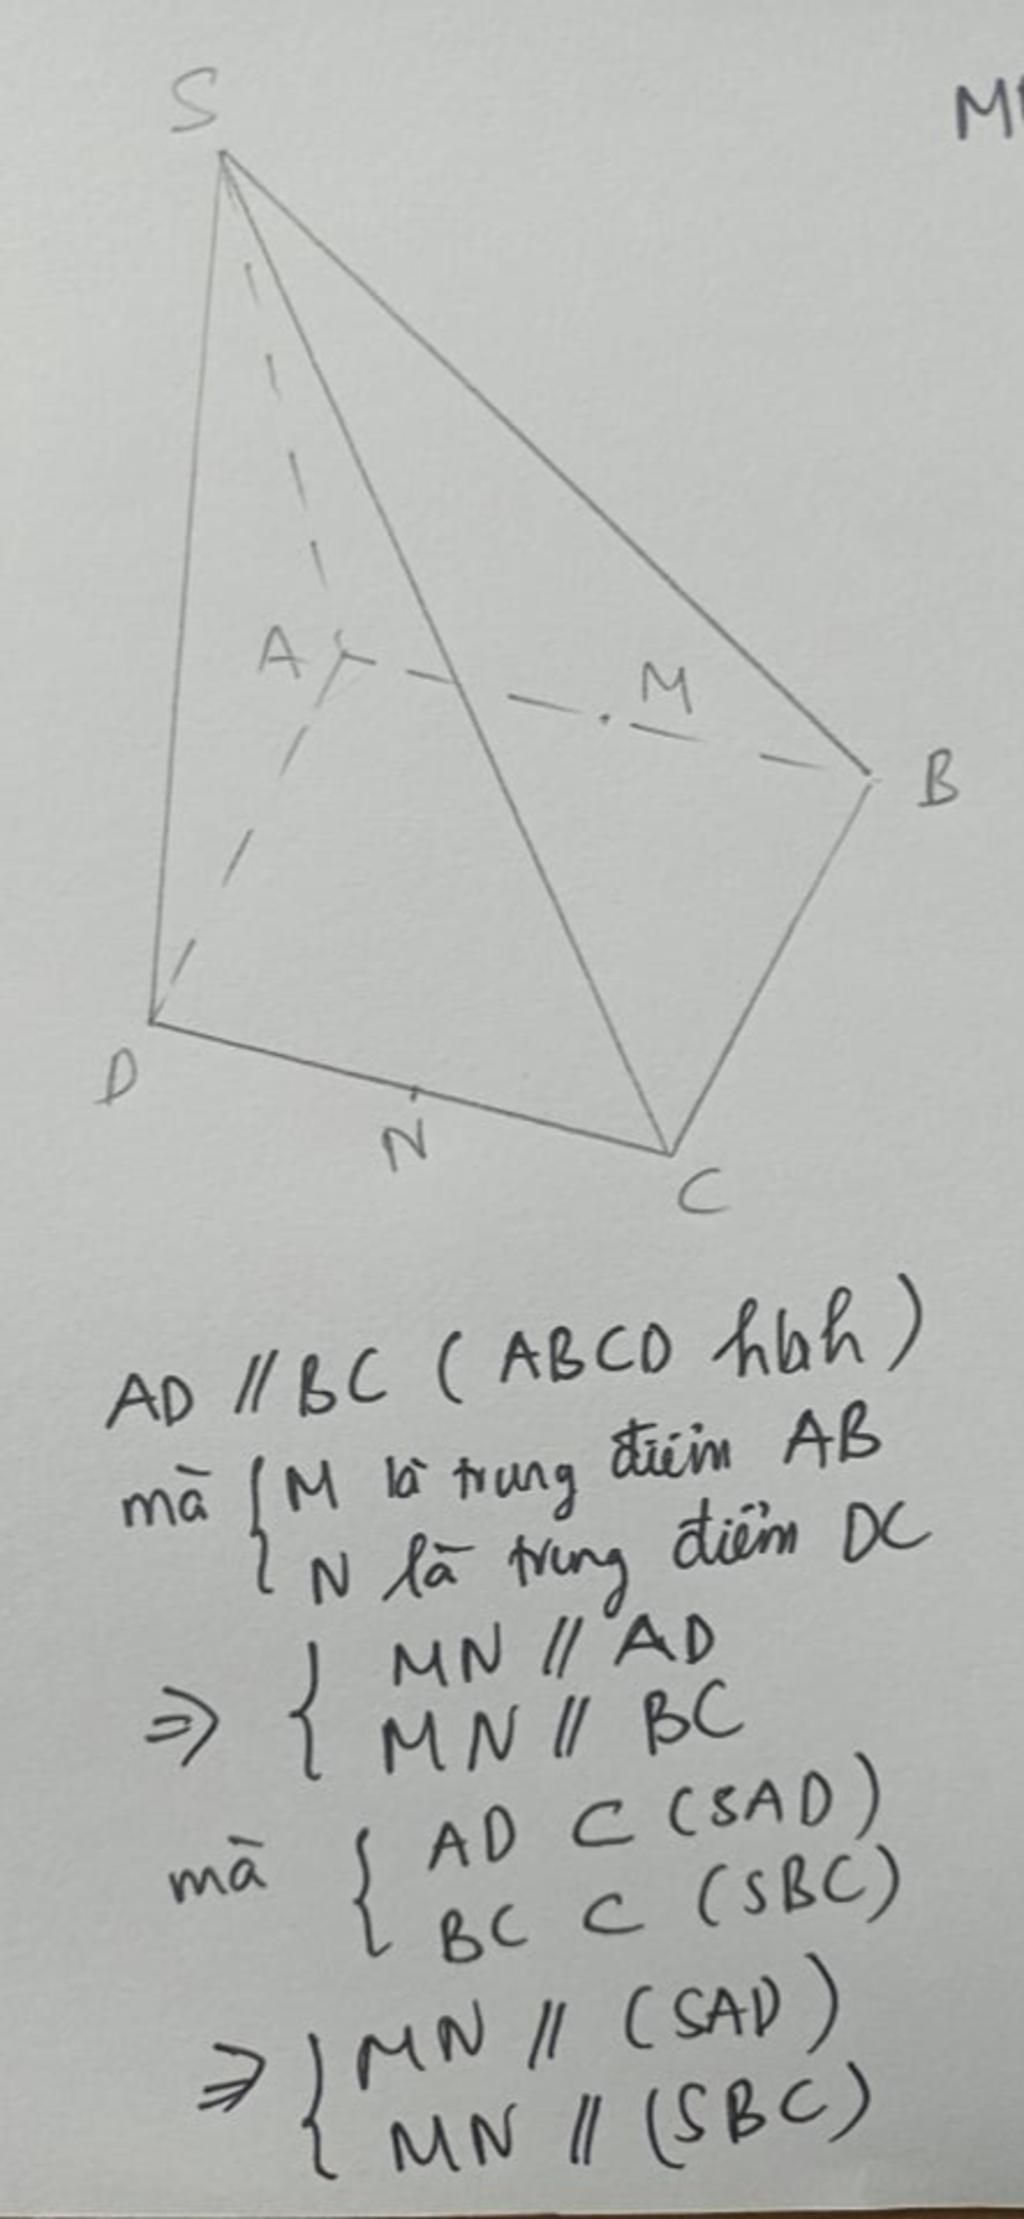 S
A
M
B
D
N
C
AD // BC ( ABCD hbh )
mà { M là trung điểm AB
N là trung điểm DC
⇒ { MN // AD
MN // BC
mà { AD ⊂ (SAD)
BC ⊂ (SBC)
⇒ { MN // (SAD)
MN // (SBC)